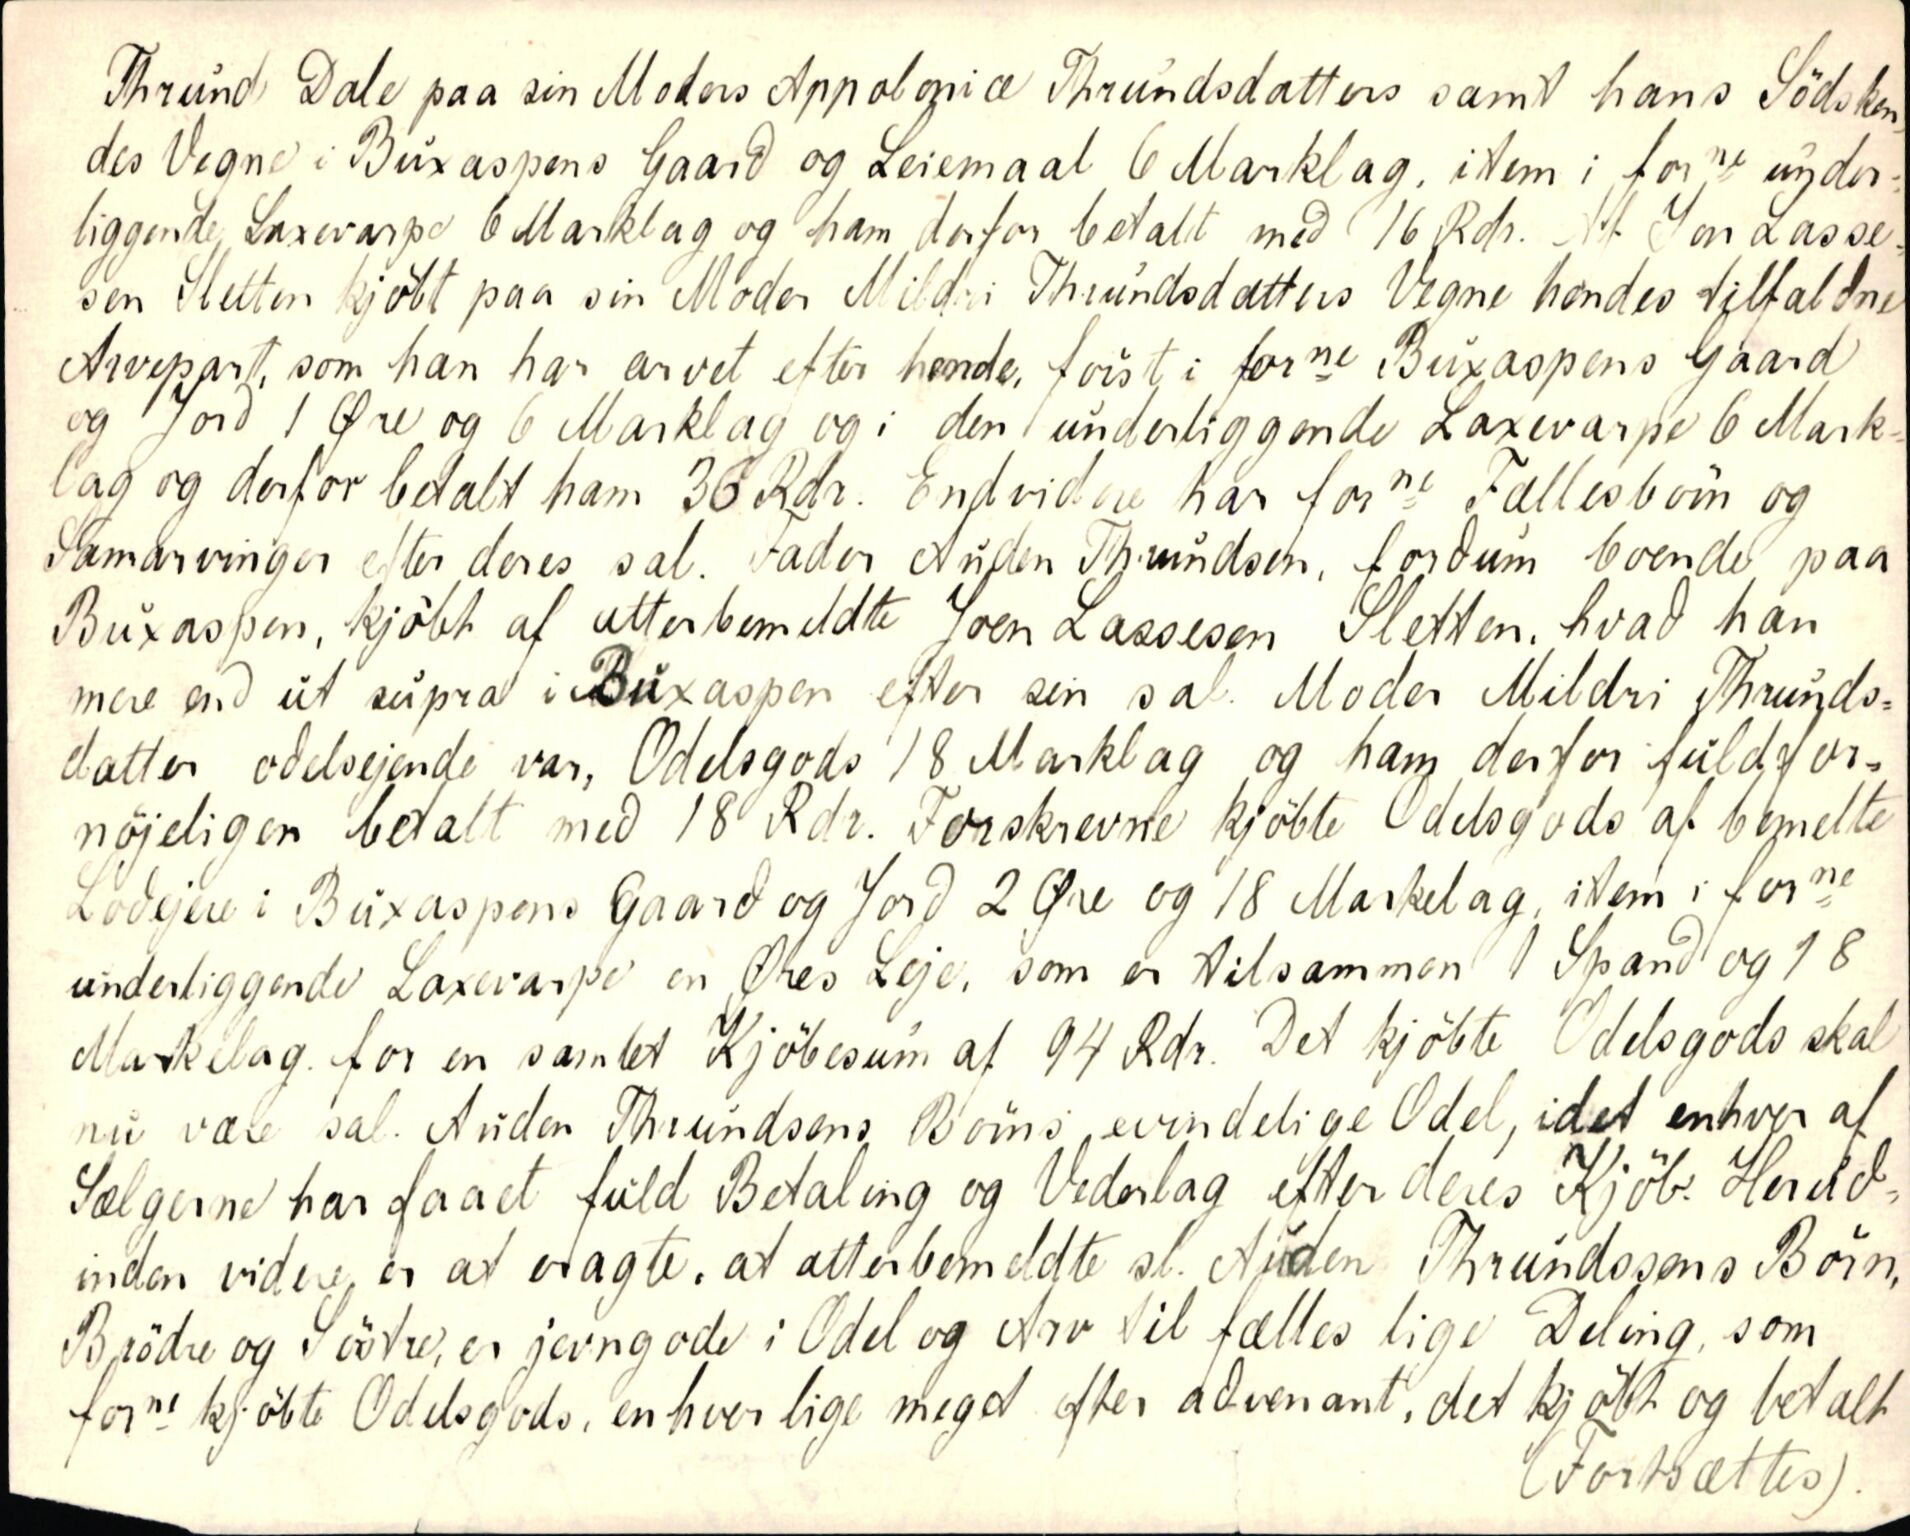 Thrund Dale paa sin Moders Appoloniæ Thrundsdatters samt hans Södsken-
des Vegne i Buxaspens Gaard og Leiemaal 6 Marklag, item i forne under-
liggende Laxevarpe 6 Marklag og ham derfor betalt med 16 Rdr. Af Jon Lasse-
sen Sletten kjöbt paa sin Moder Mildri Thrundsdatters Vegne hendes tilfaldne
Arvepart, som han har arvet efter hende, först i forne Buxaspens Gaard
og Jord 1 Øre og 6 Marklag og i den underliggende Laxevarpe 6 Mark-
lag og derfor betalt ham 36 Rdr. Endvidere har forne Fællesbörn og
Samarvinger efter deres sal. Fader Auden Thrundsen, fordum boende paa
Buxaspen, kjöbt af atterbemeldte Joen Lassesen Sletten, hvad han
mere end ut supra i Buxaspen efter sin sal. Moder Mildri Thrunds-
datter odelsejende var, Odelsgods 18 Marklag og ham derfor fuldfor-
nöjeligen betalt med 18 Rdr. Forskrevne kjöbte Odelsgods af bemelte
Lodejere i Buxaspens Gaard og Jord 2 Øre og 18 Markelag, item i forne
underliggende Laxevarpe en Øres Leje, som er tilsammen 1 Spand og 18
Markelag. for en samlet Kjöbesum af 94 Rdr. Det kjöbte Odelsgods skal
nu være sal. Auden Thrundsens Börns evindelige Odel, idet enhver af
Sælgerne har faaet fuld Betaling og Vederlag efter deres Kjöb. Herud-
inden videre er at eragte, at atterbemeldte sl. Auden Thrundssens Börn,
Brödre og Söstre, er jevngode i Odel og Arv til fælles lige Deling, som
forne kjöbte Odelsgods, enhver lige meget efter advenant, det kjöbt og betalt
(Fortsættes).